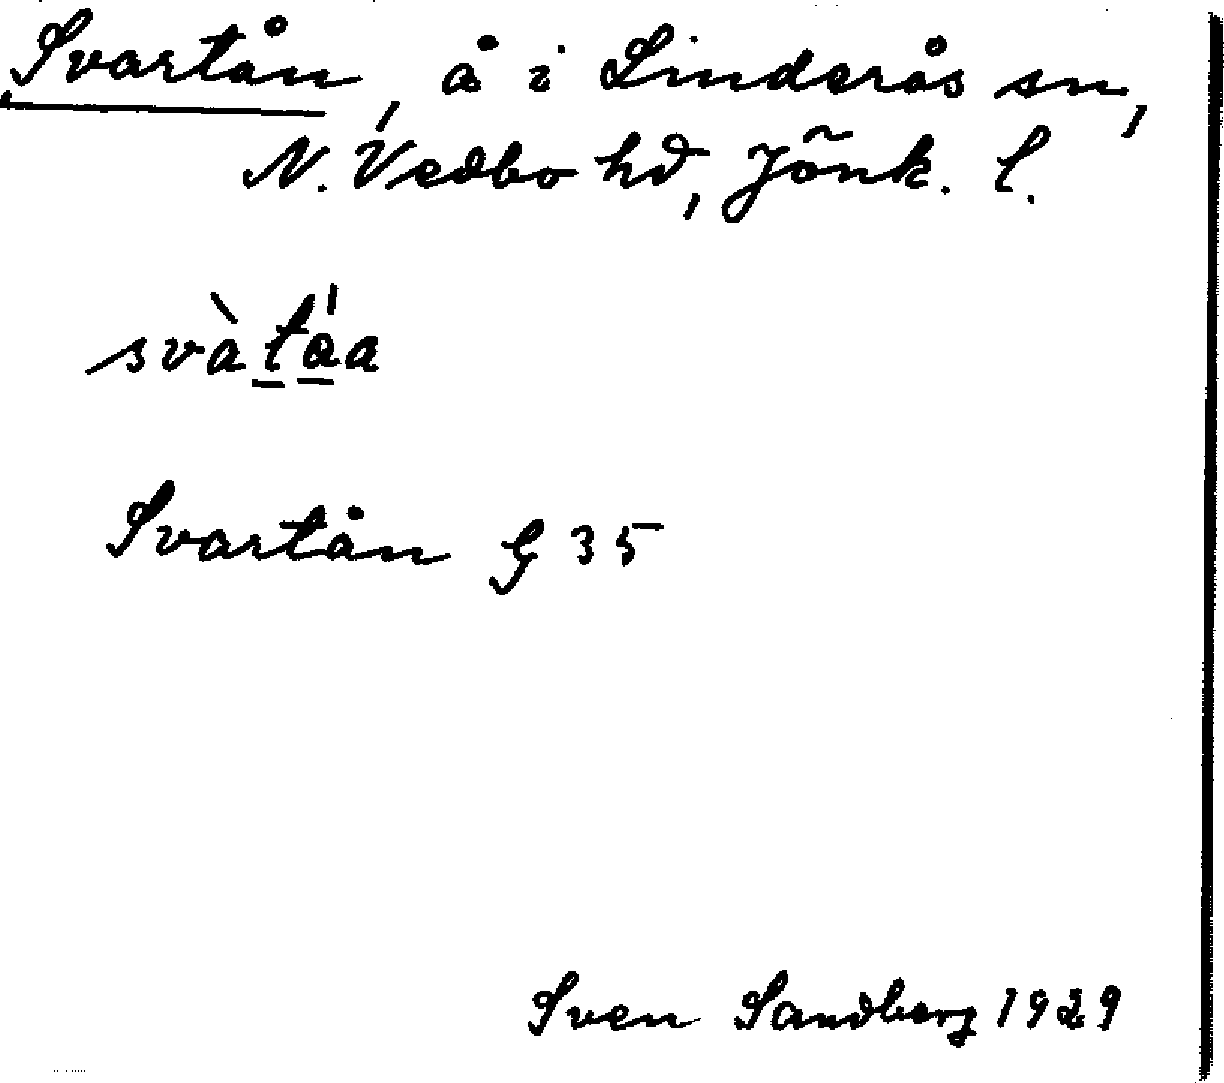 Svartån, å i Linderås sn,
N. Vedbo hd, Jönk. l.
svàtáa
Svartån G 35
Sven Sandberg 1929